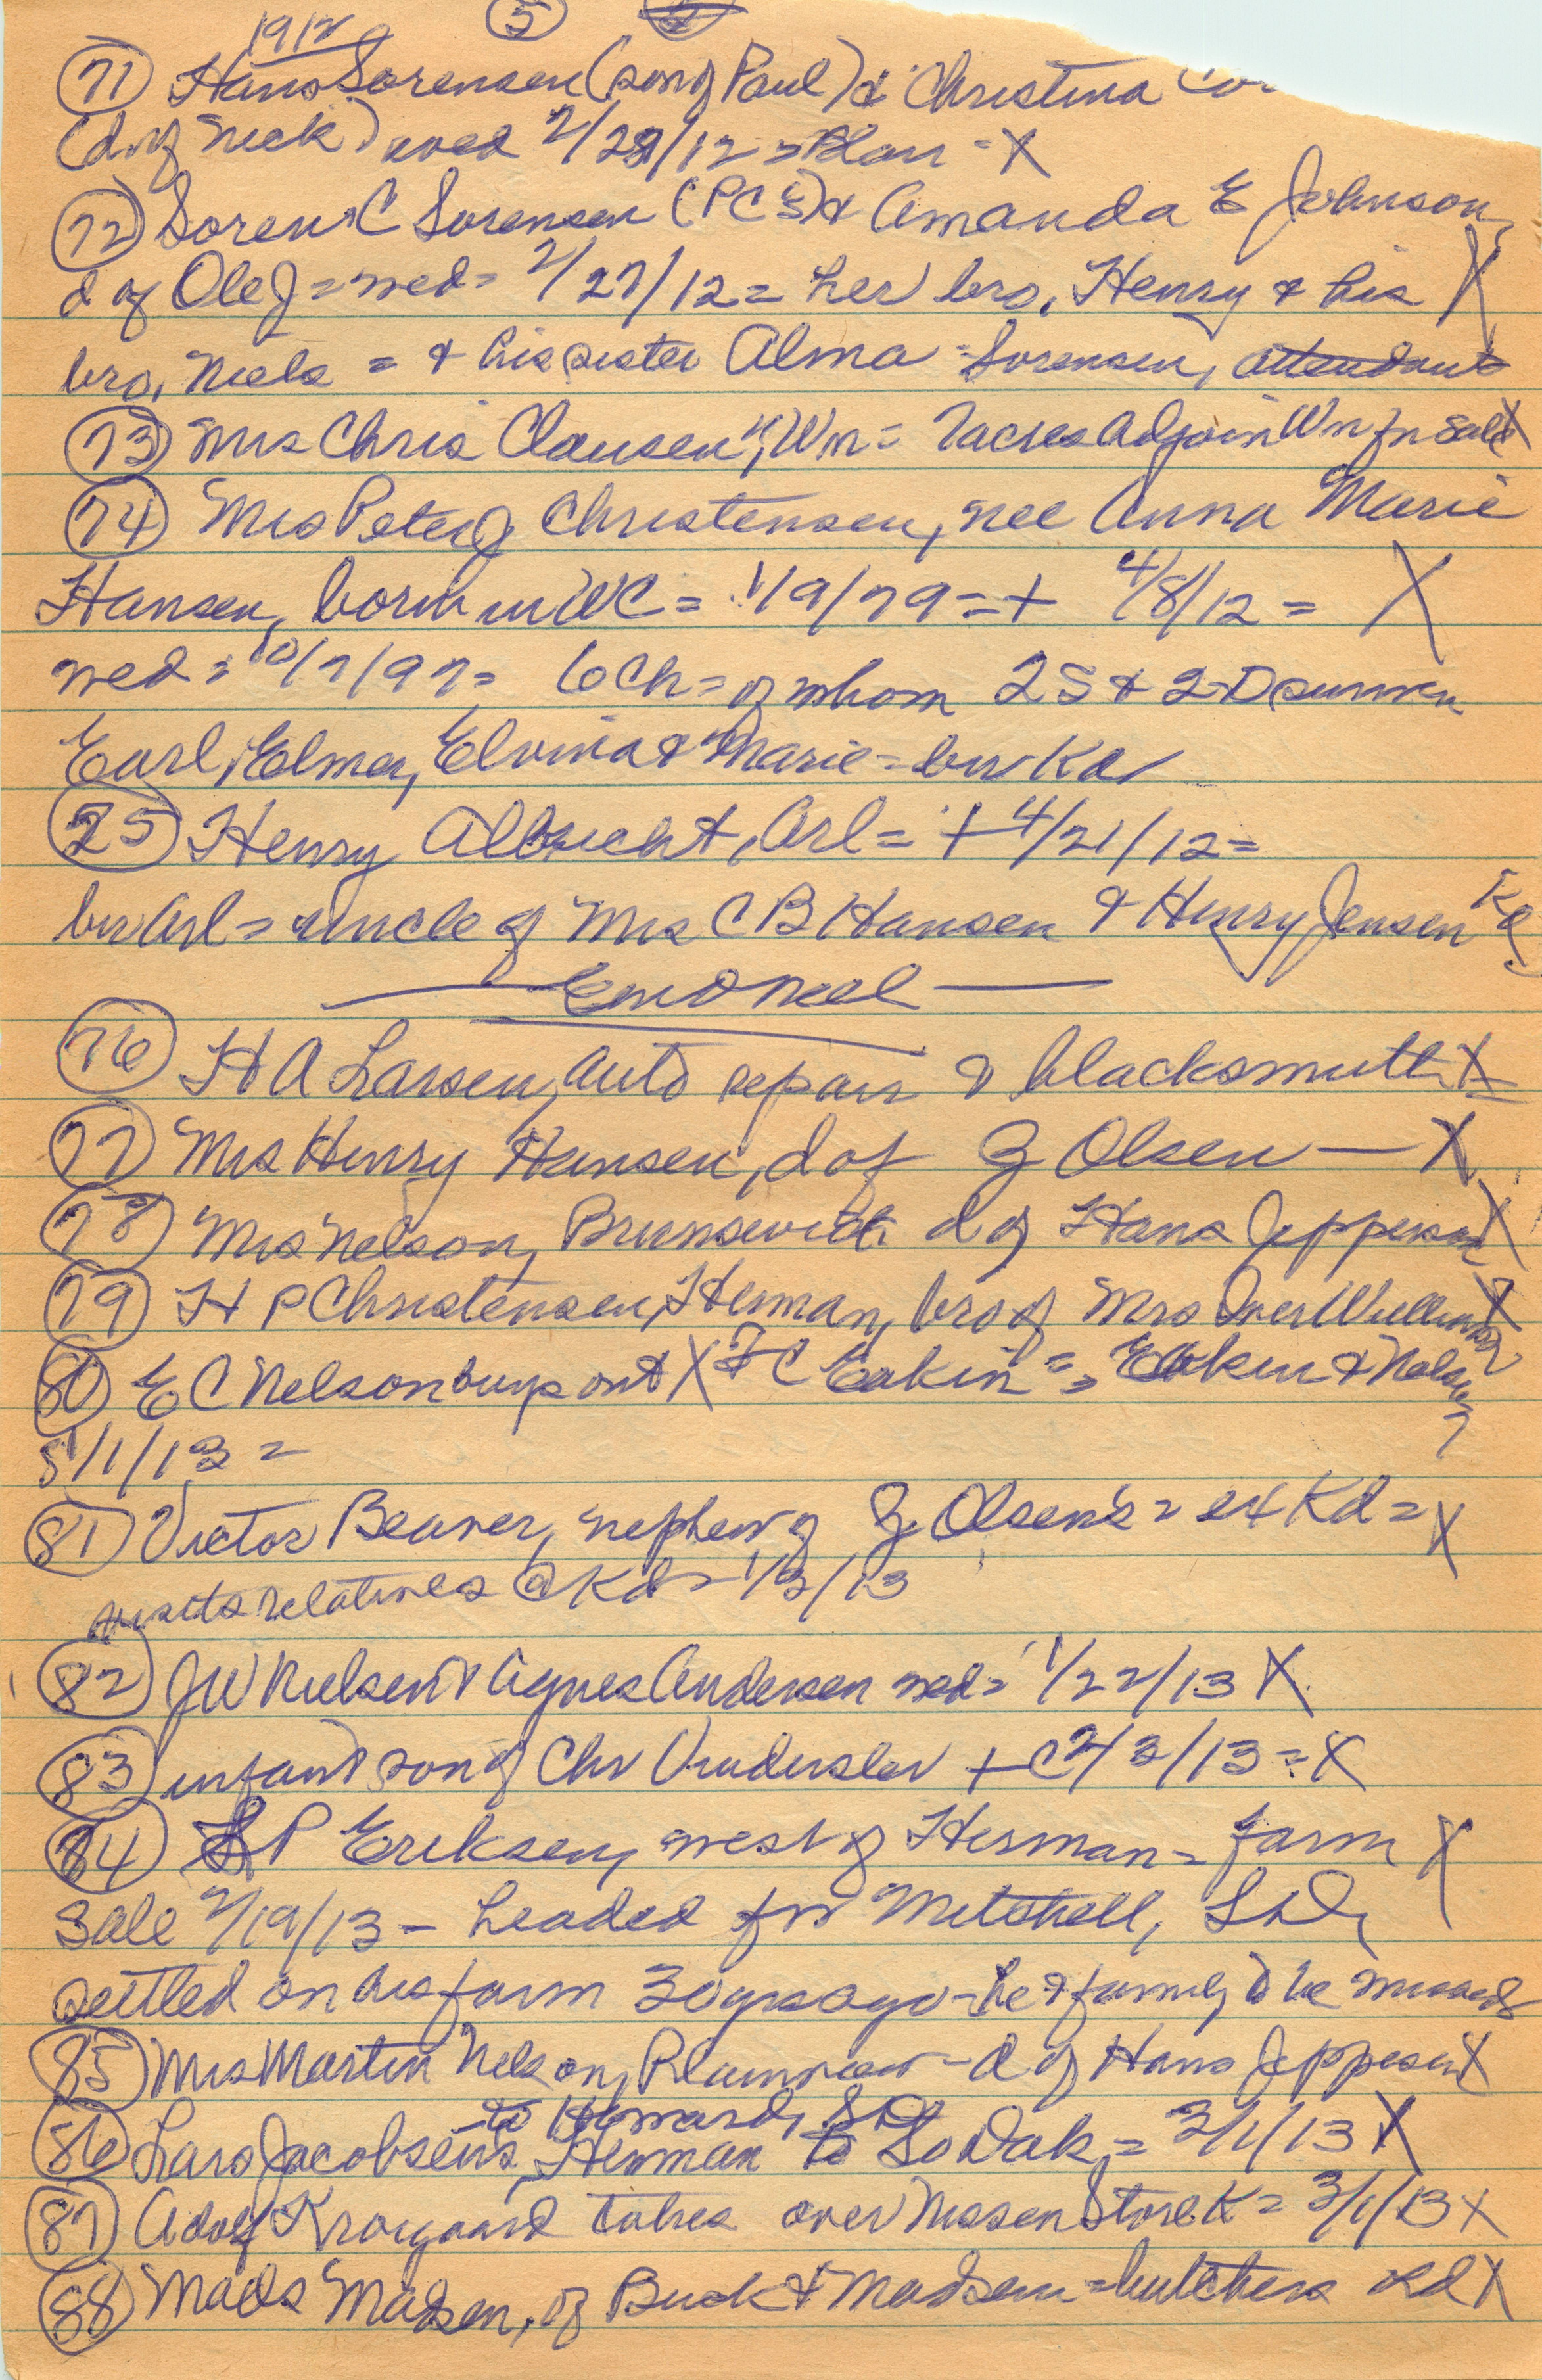 1912 (5)
(71) Hans Sorensen (son of Paul) & Christina
(d. of Neck) wed 2/28/12 = Blair - X
(72) Soren C Sorensen (PC's) & Amanda E Johnson,
d of Ole J = wed = 2/27/12 = her bro, Henry & his X
bro, Niels = & his sister Alma Sorensen, attendants
(73) Mrs Chris Clausen, Wm = 7 acres adjoin Wm for sale X
(74) Mrs Peter J Christensen, nee Anna Marie
Hansen, born in WC = 1/9/79 = + 4/8/12 = X
wed = 10/7/97 = 6 Ch = of whom 2 S & 2 D survive
Earl, Elmer, Elvina & Marie = bur Kd
(25) Henry Albrecht, Arl = + 4/21/12 =
bur Arl = uncle of Mrs C B Hansen & Henry Jensen Kd
— End Neel —
(76) H A Larsen, auto repair & blacksmith X
(77) Mrs Henry Hansen, d of G Olsen — X
(78) Mrs Nelson, Brunswick d of Hans Jeppesen X
(79) H P Christensen, Herman, bro of Mrs Iver X
(80) E C Nelson buys out X F C Eakin = Eakin & Nelson
5/1/13 =
(81) Victor Beaver, nephew of G. Olsen's = ex Kd = X
visits relatives @ Kd = 1/3/13
(82) J W Nielsen & Agnes Andersen wed = 1/22/13 X
(83) infant son of Chr Vinderslev + C 2/3/13 = X
(84) S P Eriksen, west of Herman = farm X
Sale 2/19/13 - headed for Mitchell, S D,
settled on his farm 30 yrs ago - he & family to be missed
(85) Mrs Martin Nelson, Plainview - d of Hans Jeppesen X
to Howard, SD
(86) Lars Jacobsens, Herman to So Dak = 3/1/13 X
(87) Adolf Krogaard takes over Nissen Store K = 3/1/13 X
(88) Mads Madsen, of Buck & Madsen = butchers Kd X